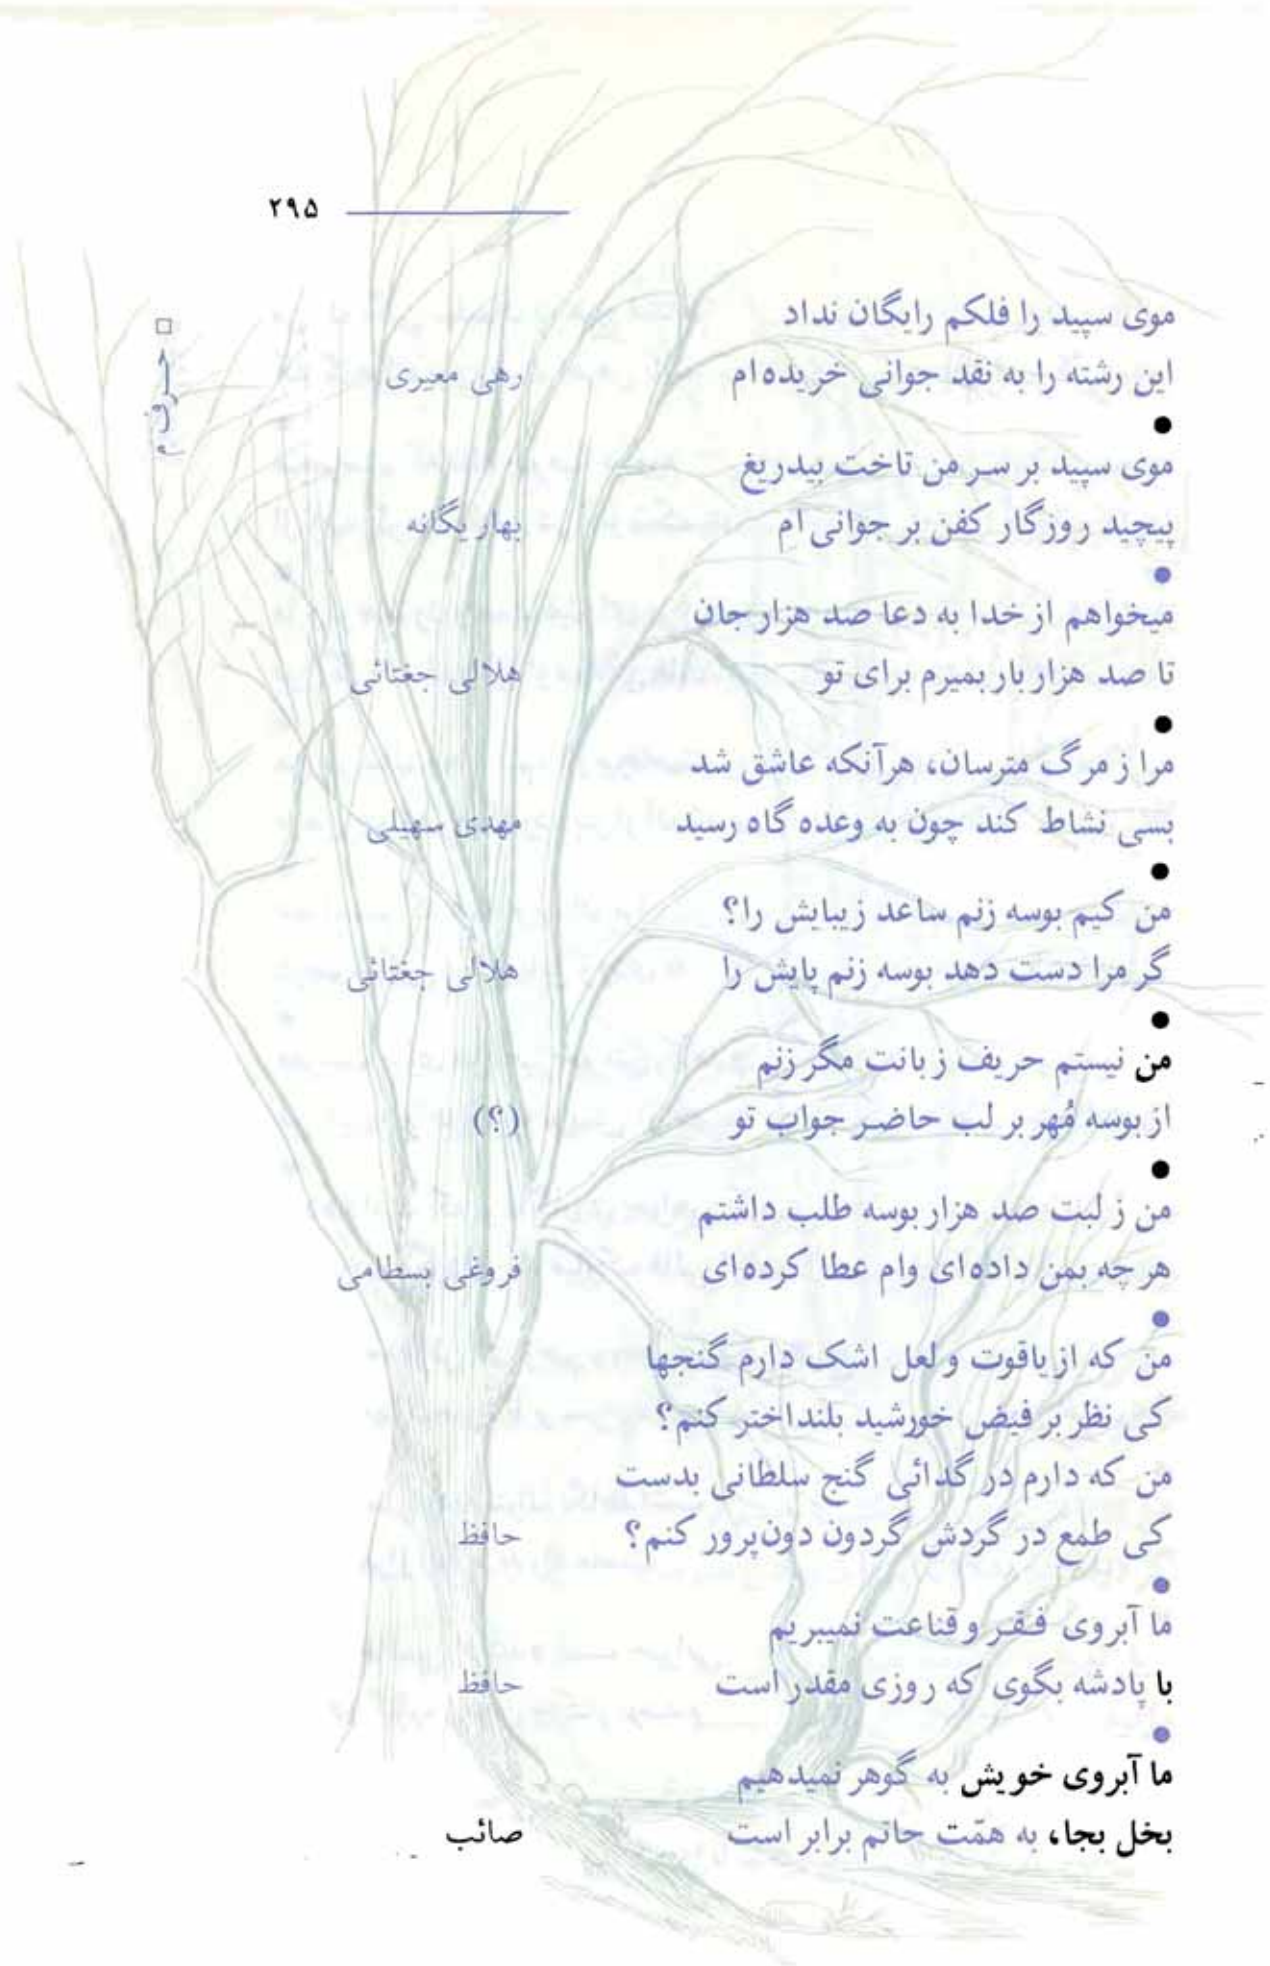 ۲۹۵
□ حرف م
موی سپید را فلکم رایگان نداد
این رشته را به نقد جوانی خریده‌ام رهی معیری
●
موی سپید بر سر من تاخت بیدریغ
پیچید روزگار کفن بر جوانی‌ام بهار یگانه
●
میخواهم از خدا به دعا صد هزار جان
تا صد هزار بار بمیرم برای تو هلالی جغتائی
●
مرا ز مرگ مترسان، هرآنکه عاشق شد
بسی نشاط کند چون به وعده گاه رسید مهدی سهیلی
●
من کیم بوسه زنم ساعد زیبایش را؟
گر مرا دست دهد بوسه زنم پایش را هلالی جغتائی
●
من نیستم حریف زبانت مگر زنم
از بوسه مُهر بر لب حاضر جواب تو (؟)
●
من ز لبت صد هزار بوسه طلب داشتم
هر چه بمن داده‌ای وام عطا کرده‌ای فروغی بسطامی
●
من که از یاقوت و لعل اشک دارم گنجها
کی نظر بر فیض خورشید بلنداختر کنم؟
من که دارم در گدائی گنج سلطانی بدست
کی طمع در گردش گردون دون‌پرور کنم؟ حافظ
●
ما آبروی فقر و قناعت نمیبریم
با پادشه بگوی که روزی مقدر است حافظ
●
ما آبروی خویش به گوهر نمیدهیم
بخل بجا، به همّت حاتم برابر است صائب